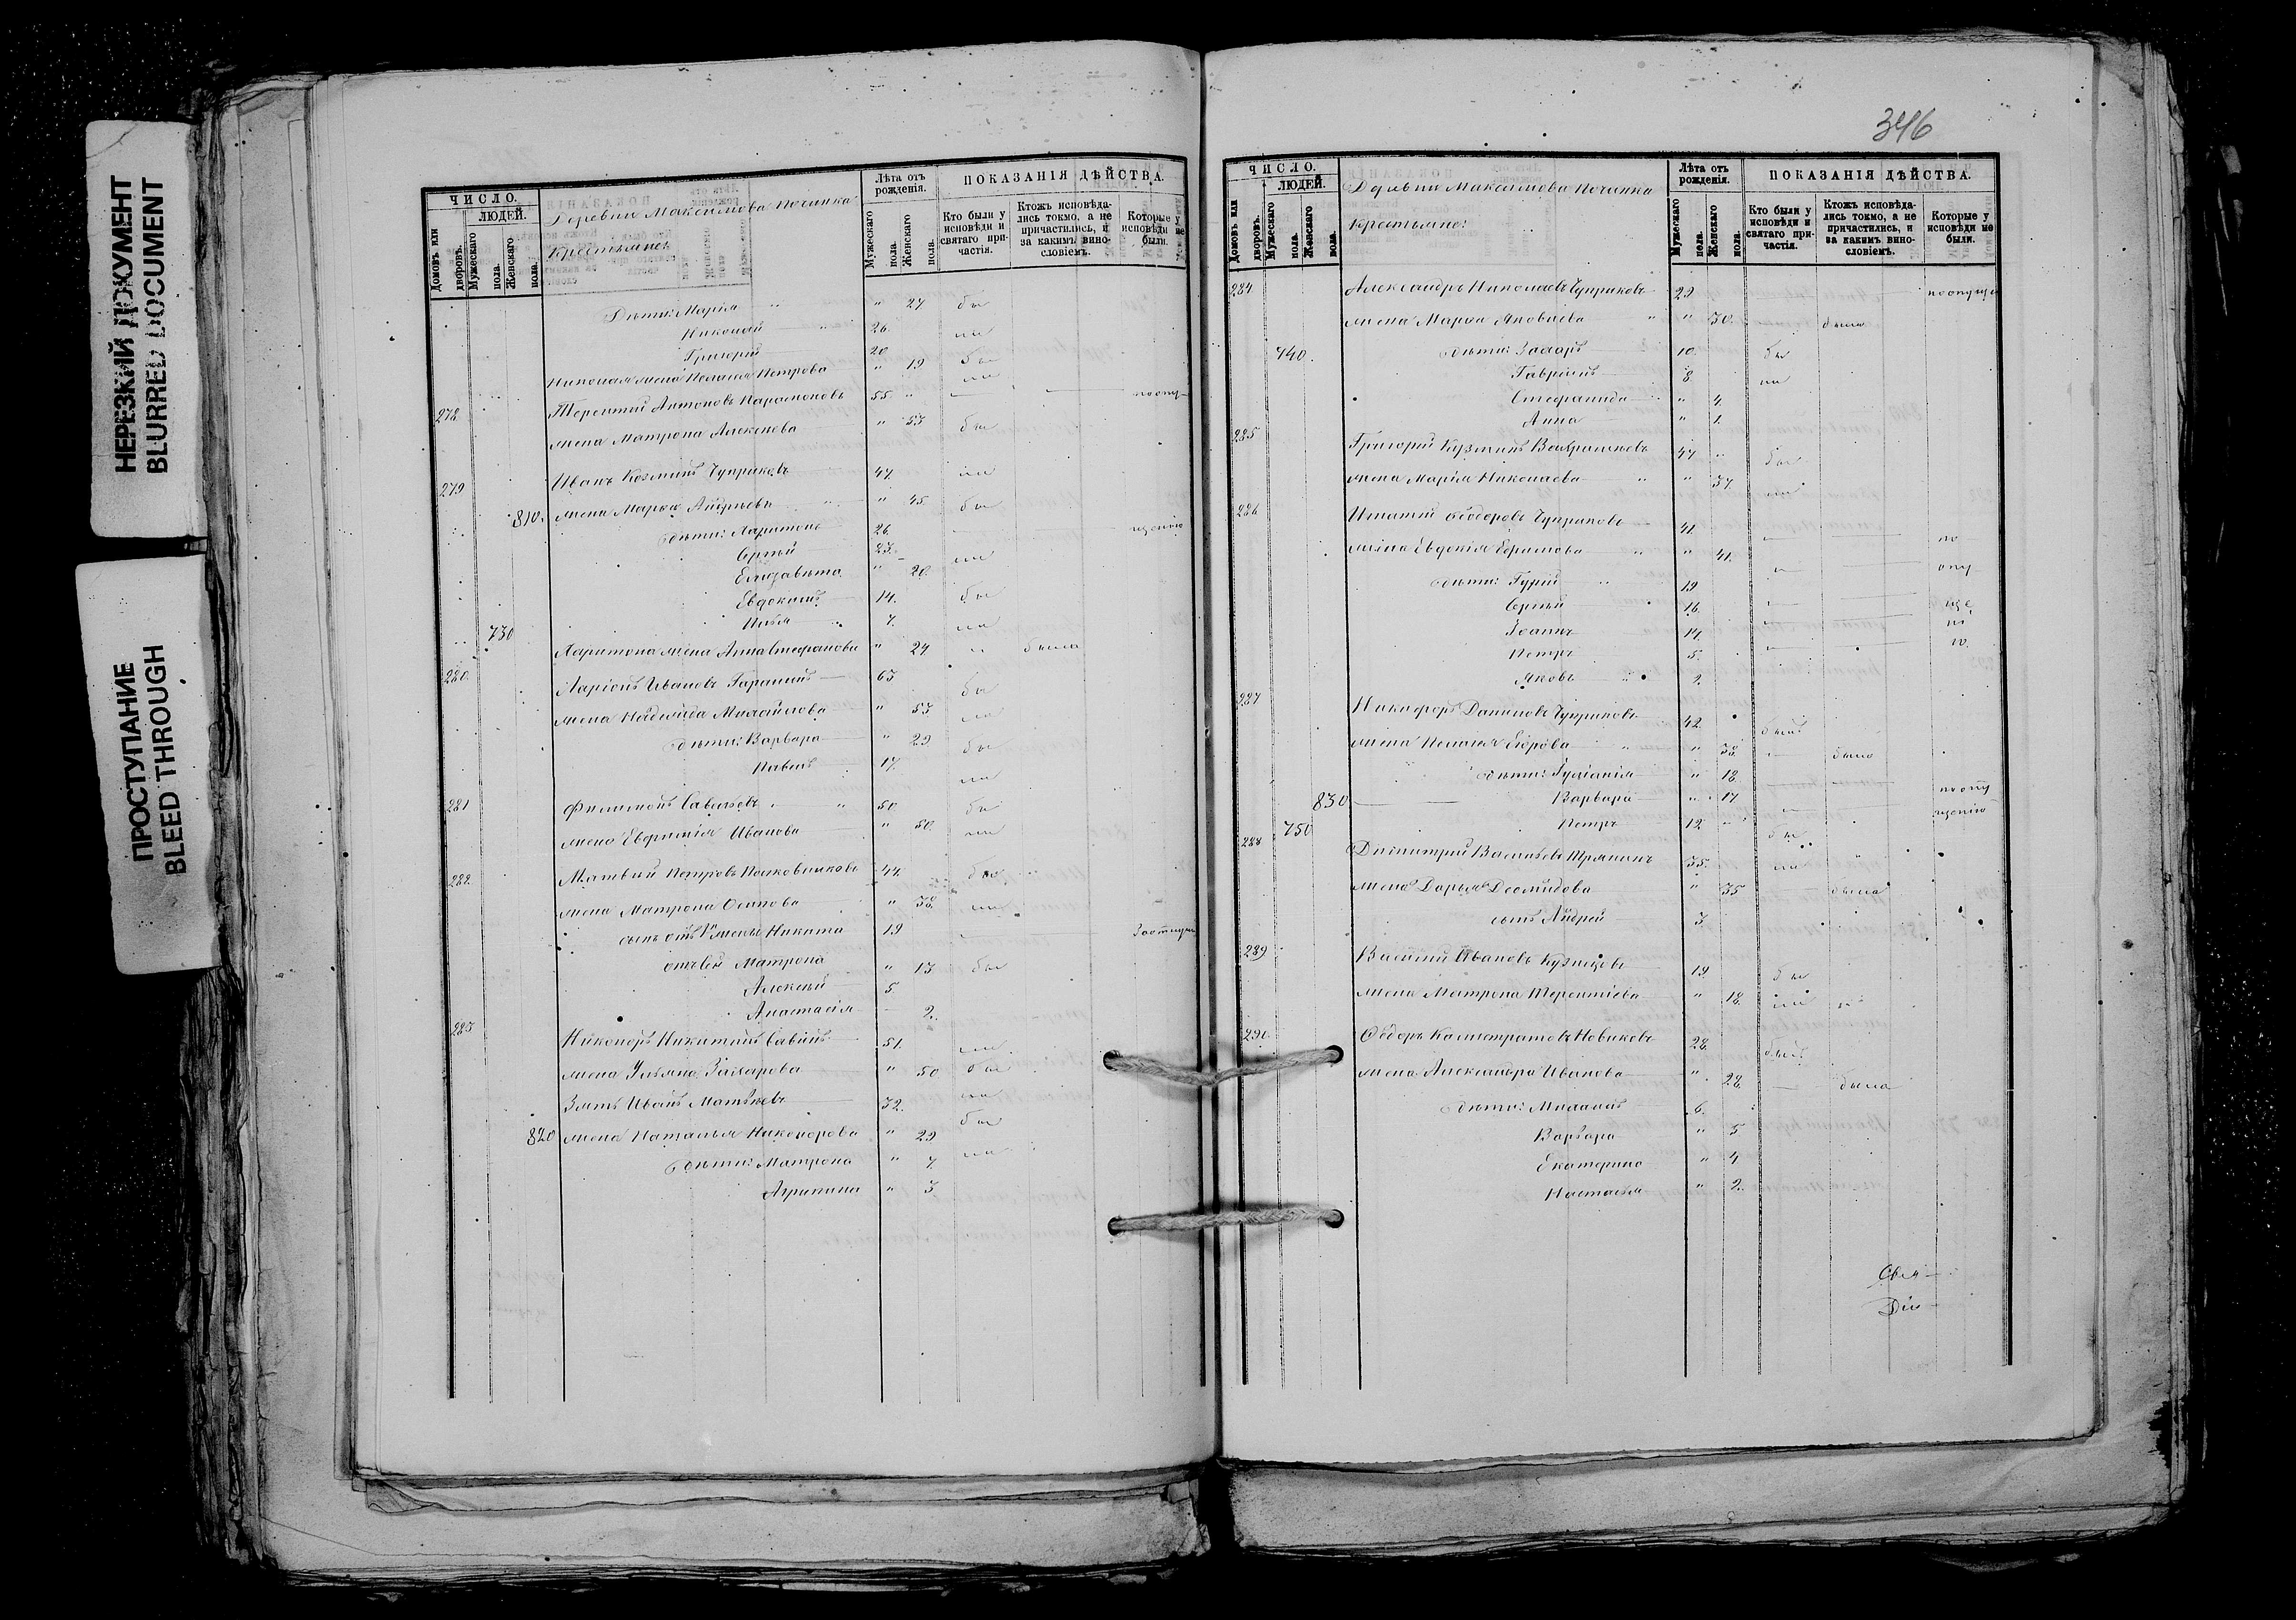 НЕРЕЗКИЙ ДОКУМЕНТ
BLURRED DOCUMENT
ПРОСТУПАНИЕ
BLEED THROUGH
ЧИСЛО.
ЛЮДЕЙ.
Домовъ или дворовъ.
Мужескаго пола.
Женскаго пола.
Деревни Максимова Починка
Крестьяне:
Лѣта отъ рожденія.
Мужескаго пола.
Женскаго пола.
ПОКАЗАНІЯ ДѢЙСТВА.
Кто были у исповѣди и святаго причастія.
Ктожъ исповѣдались токмо, а не причастились, и за какимъ винословіемъ.
Которые у исповѣди не были.
Дѣти: Марія " 27 бы
Николай 26. ли
Григорій 20 бы
Николая жена Пелагея Петрова " 19 ли
278. Терентій Антоновъ 55 " — — по опу
жена Матрона Алексѣева " 53 бы
279 Иванъ Козминъ Чуприковъ 47. ли
810. жена Марѳа Андреева " 45. бы
дѣти: Харитонъ 26. — щенію
Сергѣй 23. ли
Елизавета " 20.
Евдокимъ 14. бы
730 Илья 7. ли
Харитона жена Анна Стефанова " 24 " была
280. Ларіонъ Ивановъ Гаранинъ 65 бы
жена Надежда Михайлова " 53 ли
дѣти: Варвара " 29 бы
Павелъ 17. ли
281 Филимонъ Савельевъ " 50 бы
жена Евфимія Иванова " 50. ли
282. Матвей Петровъ Полковниковъ 44. бы
жена Матрона Осипова " 38. ли
сынъ отъ 1й жены Никита 19 —
отъ сей Матрона " 13 бы
Алексѣй 5.
Анастасія 2.
283 Никоноръ Никитинъ Савинъ 51. ли
жена Ульяна Захарова " 50 бы
Зять Иванъ Матвѣевъ 32. ли
820 жена Наталья Никонорова " 29 бы
дѣти: Матрона " 7. ли
Агрипина " 3
346
ЧИСЛО.
ЛЮДЕЙ.
Домовъ или дворовъ.
Мужескаго пола.
Женскаго пола.
Деревни Максимова Починка
Крестьяне:
Лѣта отъ рожденія.
Мужескаго пола.
Женскаго пола.
ПОКАЗАНІЯ ДѢЙСТВА.
Кто были у исповѣди и святаго причастія.
Ктожъ исповѣдались токмо, а не причастились, и за какимъ винословіемъ.
Которые у исповѣди не были.
284 Александръ Николаевъ Чуприковъ 29 по опуще
жена Марѳа Яковлева " " 30. была
740. дѣти: Захаръ 10. бы
Гавріилъ 8. ли
Стефанида " 4.
Анна " 1.
285 Григорій Кузминъ 47 " бы
жена Марія Николаева " " 37. ли
286 Игнатій Ѳеодоровъ Чуприковъ 41. — — по
жена Евдокія Ефимова " " 41. — — опу
дѣти: Гурій 19 — —
Сергѣй 16. — — ще
Іоаннъ 14. — — ні
Петръ 5. — ю.
Яковъ 2.
287 Никифоръ Даниловъ Чуприковъ 42. былъ
жена Пелагея Егорова " " 38. — была
дѣти: Іуліанія " 18. — —
830 Варвара " 17 — по опу
750 Петръ 12 " щенію
288 Димитрій Васильевъ 35. ли
жена Дарья Деомидова " 35 была
сынъ Андрей 3.
289 Василій Ивановъ Кузнецовъ 19. бы
жена Матрона Терентіева " 18. ли
290 Ѳедоръ Калистратовъ Новиковъ 28. былъ
жена Александра Иванова " 28. — была
дѣти: Михаилъ 6.
Варвара " 5
Екатерина " 4.
Настасья " 2.
Свя
Діа